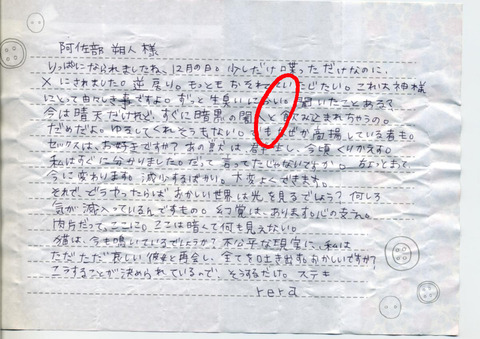 阿佐部 朔人 様
りっぱになられましたね、12月の日。少しだけ喋っただけなのに、
×にされました。逆戻り。もっとも たい。これは神様
にとって ですよ。ずっと生臭いにおい。 たことある
今は晴天だけれど、すぐに暗黒の闇へと飲み込まれちゃうの。
だめだよ。ゆるしてくれそうもない。でもなぜか高揚している者も。
セックスは、お好きですか?あの獣は し、今頃くりかえす。
私はすぐに分かりました。だって言ってたじゃないですか。ちょっとまて
今に変わります。減少するばかり。大変よくできます。
それで、どうやったらば、おかしい世界は光を見るでしょう?何しろ
気が滅入っているんですもの。幻覚は、あります。心の支え。
肉片だって、ここに。ここは暗くて何も見えない。
猫は、今も鳴いているでしょうか?不公平な現実に、私は
ただただ哀しい彼女と再会し、全てを吐き出す。おかしいですか?
こうすることが決められているので、そうするだけ。ステキ
rera